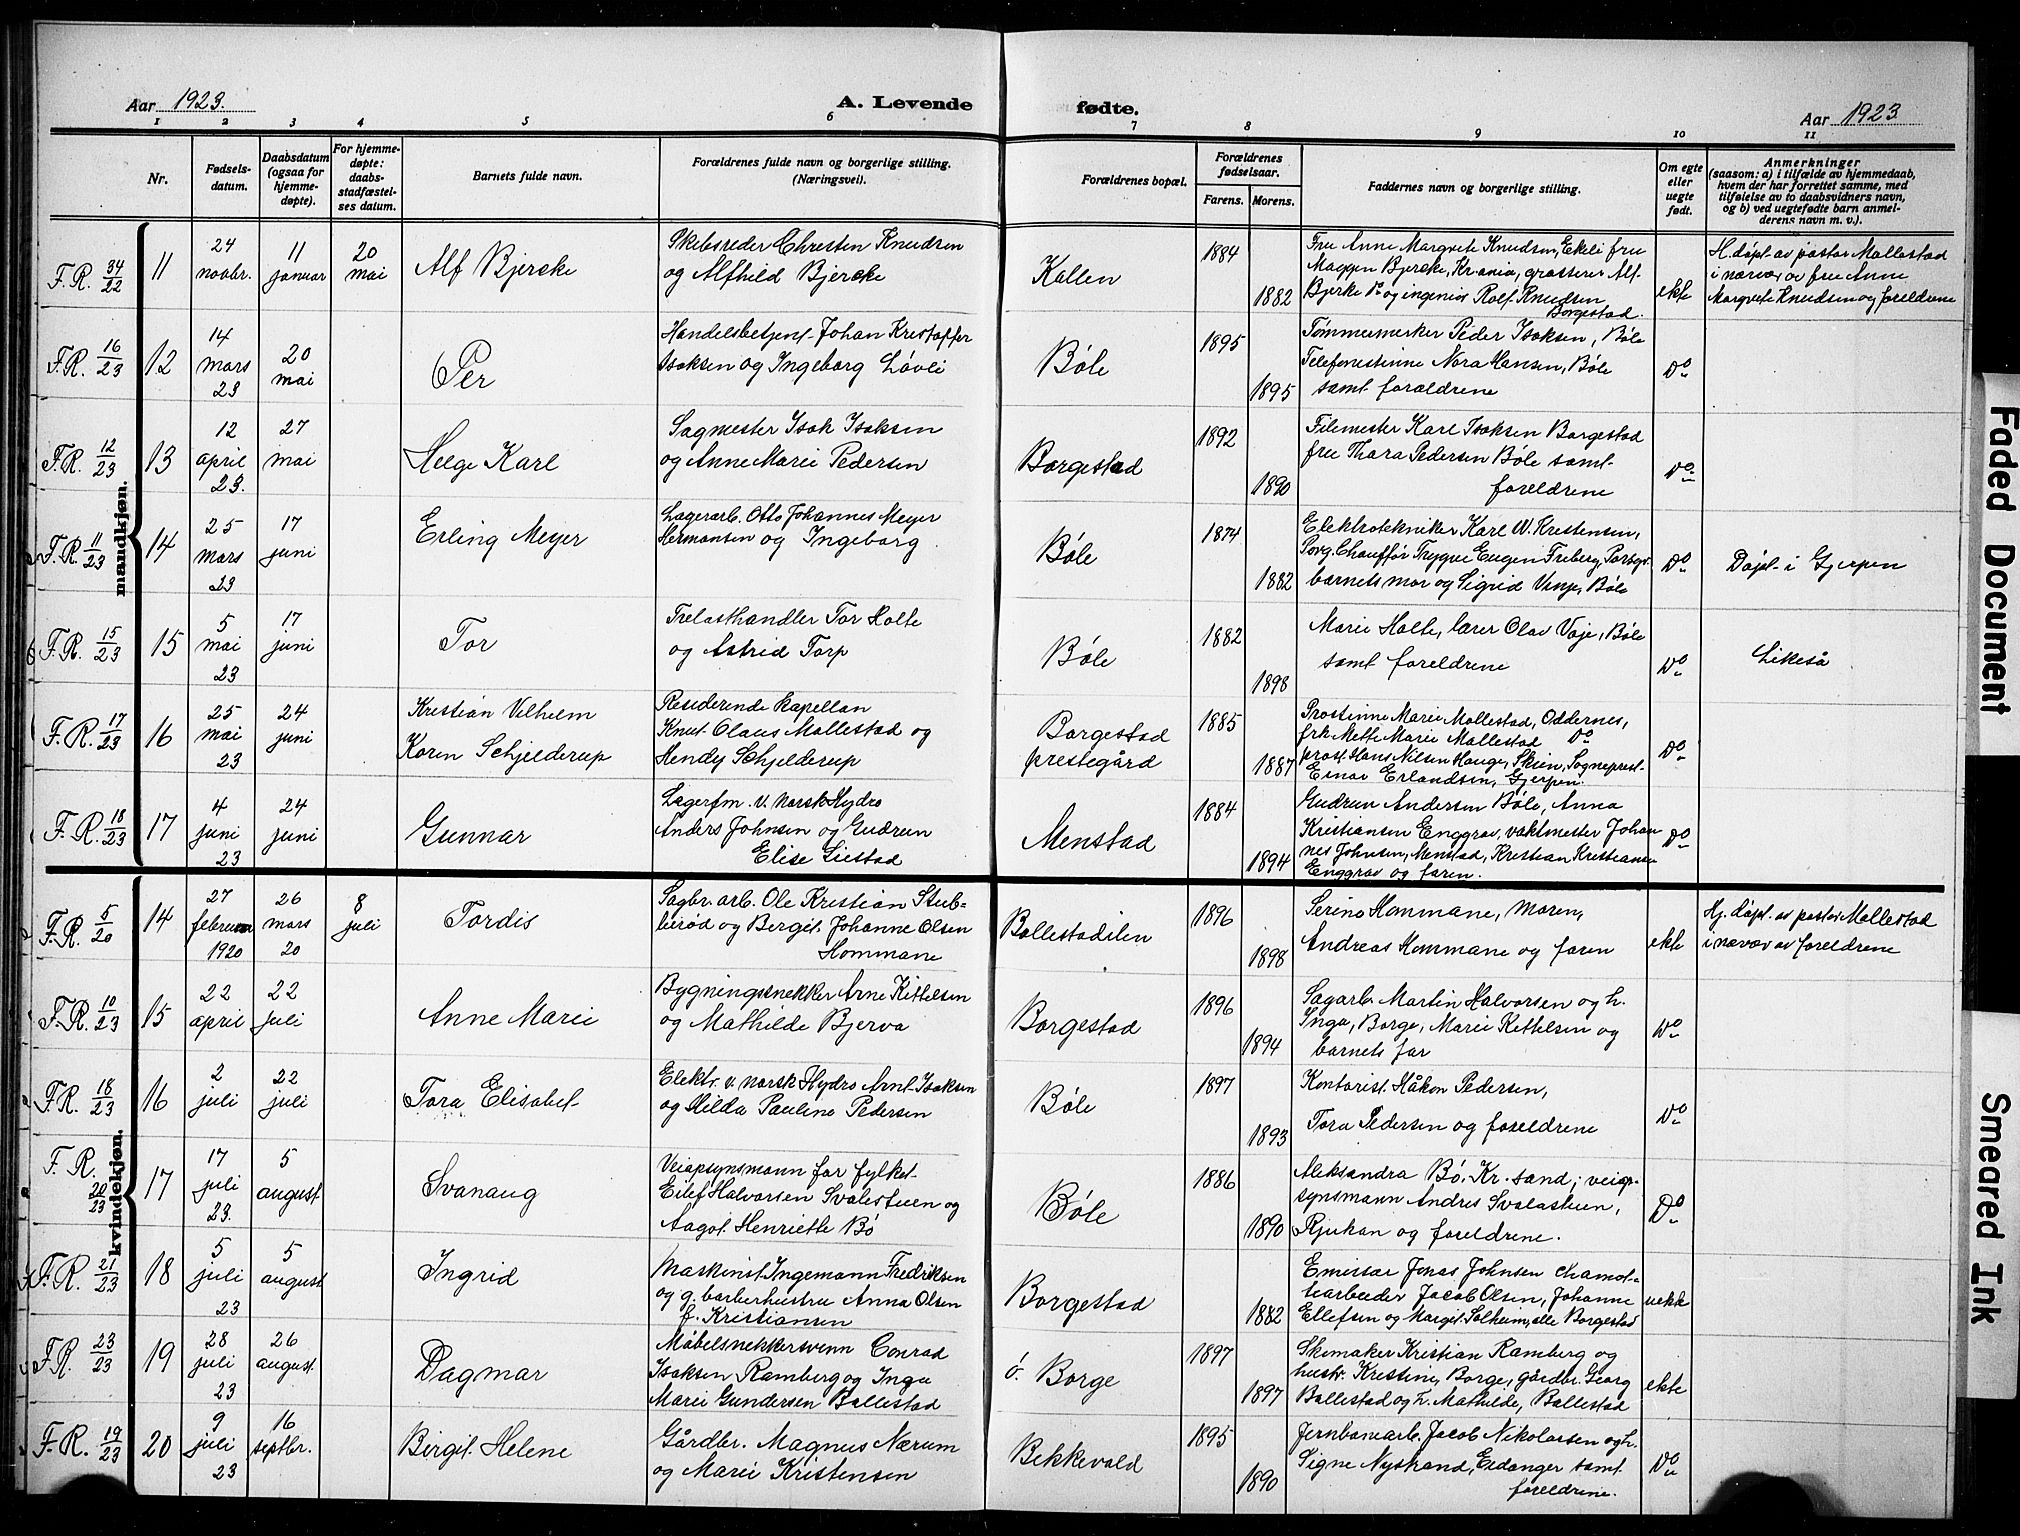 Aar 1923.
A. Levende fødte.
Aar 1923
1 2 3 4 5 6 7 8 9 10 11
Nr.
Fødselsdatum.
Daabsdatum (ogsaa for hjemmedøpte).
For hjemmedøpte: daabsstadfæstelses datum.
Barnets fulde navn.
Forældrenes fulde navn og borgerlige stilling. (Næringsvei).
Forældrenes bopæl.
Forældrenes fødselsaar.
Farens. Morens.
Faddernes navn og borgerlige stilling.
Om egte eller uegte født.
Anmerkninger
(saasom: a) i tilfælde av hjemmedaab,
hvem der har forrettet samme, med
tilføielse av to daabsvidners navn,
og b) ved uegtefødte barn anmelderens navn m. v.).
mandkjøn.
F.R. 34/22 11 24 novbr. 11 januar 20 mai
Alf Bjercke
Skibsreder Chresten Knudsen
og Alfhild Bjercke
Kallen
1884
1882
Fru Anne Margrete Knudsen, Ekeli fru
Maggen Bjercke, Krania, grosserer Alf
Bjerke Do og ingeniør Rolf Knudsen
Borgestad.
ekte
H.døpt av pastor Mallestad
i nærvær av fru Anne
Margrete Knudsen og foreldrene
F.R. 16/23 12 14 mars 23 20 mai
Per
Handelsbetjent Johan Kristoffer
Isaksen og Ingeborg Løvli
Bøle
1895
1895
Tømmermerker Peder Isaksen, Bøle
Telefonistinne Nora Hansen, Bøle
samt foreldrene
Do
F.R. 12/23 13 12 april 23. 27 mai
Helge Karl
Sagmester Isak Isaksen
og Anne Marie Pedersen
Borgestad
1892
1890
Filemester Karl Isaksen Borgestad
fru Thora Pedersen Bøle samt
foreldrene
Do
F.R. 11/23 14 25 mars 23 17 juni
Erling Meyer
Lagerarb. Otto Johannes Meyer
Hermansen og Ingeborg
Bøle
1874
1882
Elektrotekniker Karl W. Kristensen,
Porsg. Chauffør Trygve Eugen Friberg, Porsgr.
barnets mor og Sigrid Vinje, Bøle
Do
Døpt i Gjerpen
F.R. 15/23 15 5 mai 23 17 juni
Tor
Trelasthandler Tor Holte
og Astrid Torp
Bøle
1882
1898
Marie Holte, lærer Olav Vaje, Bøle
samt foreldrene
Do
Likeså
F.R. 17/23 16 25 mai 23 24 juni
Kristian Vilhelm
Koren Schjelderup
Residerende kapellan
Knut Olaus Mallestad og
Hendy Schjelderup
Borgestad
prestegård
1885
1887
Prostinne Marie Mallestad, Oddernes,
frk Mette Marie Mallestad Do
prost Hans Nilsen Hauge, Skien, Sogneprest
Einar Erlandsen, Gjerpen.
Do
F.R. 18/23 17 4 juni 23 24 juni
Gunnar
Lagerfm. v. Norsk Hydro
Anders Johnsen og Gudrun
Elise Giestad
Menstad
1884
1894
Gudrun Andersen Bøle, Anna
Kristiansen Enggrav, vaktmester Johan
nes Johnsen, Menstad, Kristian Kristiansen
Enggrav og faren.
Do
kvindekjøn.
F.R. 5/20 14 27 februar 1920 26 mars 20 8 juli
Tordis
Sagbr. arb. Ole Kristian Stub-
lierød og Bergit Johanne Olsen
Hommane
Ballestadilen
1896
1898
Serine Hommane, moren,
Andreas Hommane og faren
ekte
Hj. døpt av pastor Mallestad
i nærvær av foreldrene
F.R. 10/23 15 22 april 22 juli
Anne Marie
Bygningssnekker Arne Kittelsen
og Mathilde Bjerva
Borgestad
1896
1894
Sagarb. Martin Halvorsen og h.
Inga, Borge, Marie Kittelsen og
barnets far
Do
F.R. 18/23 16 2 juli 22 juli
Tora Elisabet
Elektr. v. norsk Hydro Arnt Isaksen
og Hilda Pauline Pedersen
Bøle
1897
1893
Kontorist Håkon Pedersen,
Tora Pedersen og foreldrene
Do
F.R. 20/23 17 17 juli 23. 5 august
Svanaug
Veiopsynsmann for fylket
Eilef Halvorsen Svalestuen og
Aagot Henriette Bø
Bøle
1886
1890
Aleksandra Bø, Kr.sand; veiop-
synsmann Andres Svalastuen,
Rjukan og foreldrene.
Do
F.R. 21/23 18 5 juli 23 5 august
Ingrid
Maskinist Ingemann Fredriksen
og g. barberhustru Anna Olsen
f. Kristiansen
Borgestad
1882
Emissær Jonas Johnsen chamot-
tearbeider Jacob Olsen, Johanne
Ellefsen og Margit Solheim, alle Borgestad
uekte
F.R. 23/23 19 28 juli 23 26 august
Dagmar
Møbelsnekkersvenn Conrad
Isaksen Ramberg og Inga
Marie Gundersen Ballestad
ö. Borge
1897
1897
Skomaker Kristian Ramberg og
hustr. Kristine, Borge, gårdbr. Georg
Ballestad og h. Mathilde, Ballestad
ekte
F.R. 19/23 20 9 juli 23 16 septbr.
Birgit Helene
Gårdbr. Magnus Nærum
og Marie Kristensen
Bekkevold
1895
1890
Jernbanearb. Jacob Nikolaisen og h.
Signe Nystrand, Eidanger samt
foreldrene.
Do
Faded Document
Smeared Ink